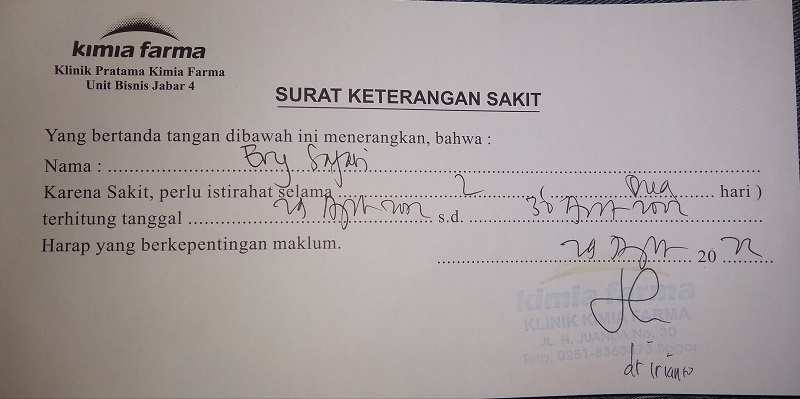 kimia farma
Klinik Pratama Kimia Farma
Unit Bisnis Jabar 4
SURAT KETERANGAN SAKIT
Yang bertanda tangan dibawah ini menerangkan, bahwa :
Nama : Ery Safari
Karena Sakit, perlu istirahat selama 2 ( Dua hari )
terhitung tanggal 29 s.d. 30
Harap yang berkepentingan maklum.
29 20 22
kimia farma
KLINIK KIMIA FARMA
JL. H. JUANDA No. 30
Telp. 0251- Bogor
dr irianto